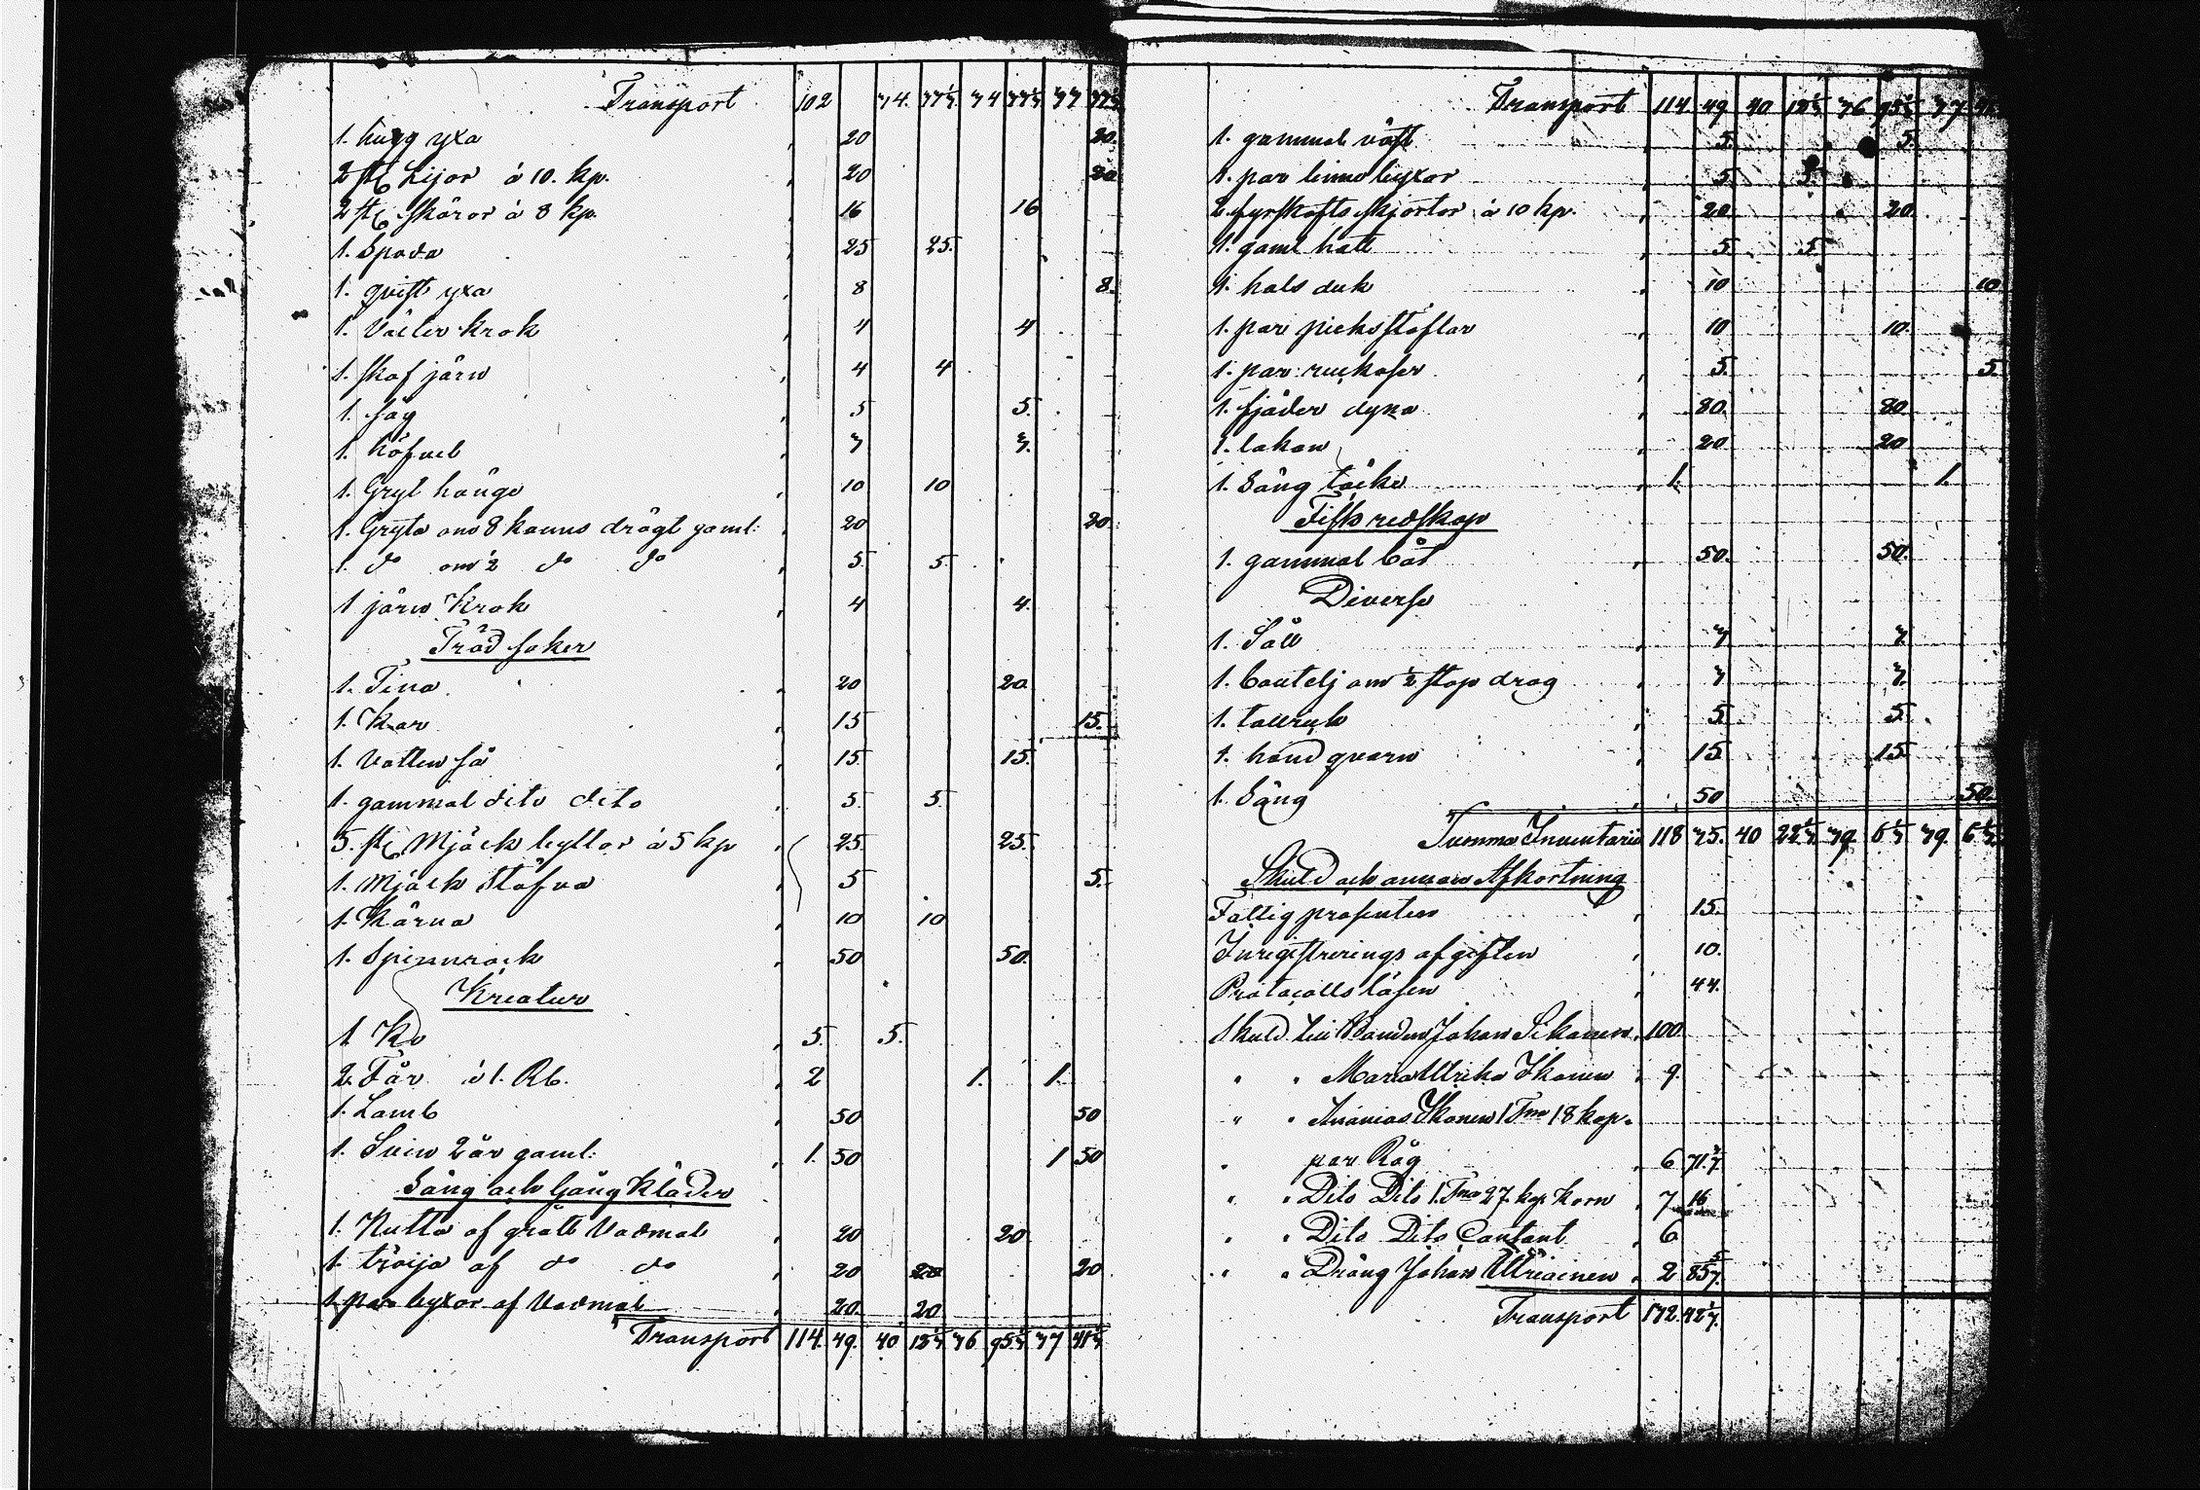 Transport 102 34. 37 1/7 34 37 1/7 37
1. hugg yxa " 20 20.
2 st. Lijor á 10. kp. " 20 20
2 st. skäror á 8 kp. " 16 16
1. Spada " 25 25.
1. qvist yxa " 8 8.
1. krok " 4 4
1. skaf järn " 4 4
1. såg " 5 5.
1. höfvel " 7 7.
1. Gryt hänge " 10 10
1. Gryta om 8 kanns drägt gaml: " 20 20.
1. do om 2 do do " 5. 5.
1 järn Krok " 4 4.
Träd saker
1. Tina " 20 20
1. Kar " 15 15.
1. Vatten så " 15. 15.
1. gammal dito dito " 5. 5.
5. st. Mjölk byttor á 5 kp " 25. 25.
1. Mjölk Stäfva " 5 5.
1. Kärna " 10 10
1. Spinnrock " 50 50.
Kreatur
1 Ko " 5. 5.
2. Får á 1. Rb. " 2 1. 1.
1. Lamb " 50 50
1. Svin 2 år gaml: " 1. 50 1 50
Säng och Gång Kläder
1. Kutta af grått Vadmal " 20 20
1. tröija af do do " 20 20 20
1. par byxor af Vadmal " 20. 20
Transport 114. 49. 40 15 1/7 36 95 1/7 37 41 1/7
Transport 114 49 40 36 95 1/7 37
1. gammal väst " 5. 5.
1. par linne byxor " 5. 5.
2. fyrskafts skjortor á 10 kp. " 20 20
1. gaml hatt " 5. 5
1. hals duk " 10 10
1. par pieksstöflar " 10 10.
1. par: ruckaser " 5. 5.
1. fjäder dyna " 80. 80
1. lakan " 20 20
1. Säng täcke " 1. 1.
Fisk redskap
1. gammal båt " 50. 50.
Diverse
1. Såll " 7 7.
1. boutelj om 1/2 stop drag " 7 7.
1. tallrik " 5. 5.
1. hand qvarn " 15. 15
1. Säng " 50 50.
Summa Inventarie 118 75. 40 39 5 1/7 39.
Skuld och annan Afkortning
Fattig prosenten " 15.
Inregistrerings afgiften " 10.
Protocolls lösen " 44.
Skuld till Bonden Johan Sikanen " 100.
" " Maria Ulrika Ikonen " 9.
" " Ananias Ikonen 1 Tna 18 kap.
" par Råg " 6 71
" " Dito Dito 1. Tna 27. kp. Korn " 7 16
" " Dito Dito Contant " 6
" " Dräng Johan " 2 85
Transport 172. 42 1/7.